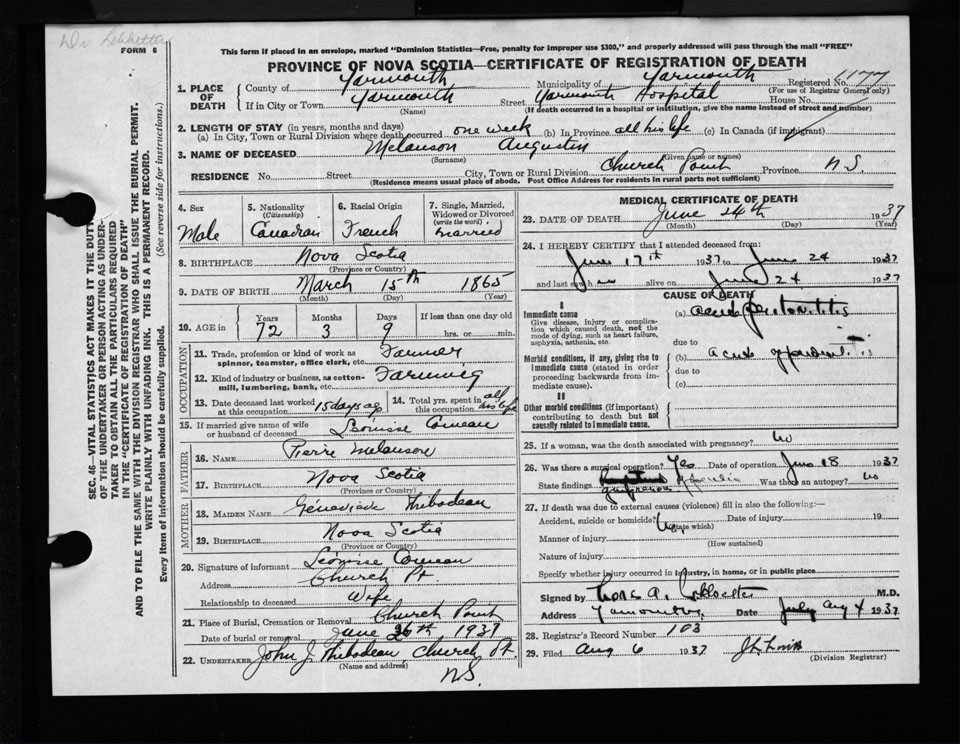 FORM 6
This form if placed in an envelope, marked "Dominion Statistics—Free, penalty for improper use $300," and properly addressed will pass through the mail "FREE"
PROVINCE OF NOVA SCOTIA—CERTIFICATE OF REGISTRATION OF DEATH
1. PLACE OF DEATH
County of Yarmouth Municipality of Yarmouth Registered No. 1177
(For use of Registrar General only)
If in City or Town Yarmouth Street Yarmouth Hospital House No.
(Name) (If death occurred in a hospital or institution, give the name instead of street and number)
2. LENGTH OF STAY (in years, months and days)
(a) In City, Town or Rural Division where death occurred one week (b) In Province all his life (c) In Canada (if immigrant)
3. NAME OF DECEASED Melanson Augustin
(Surname) (Given name or names)
RESIDENCE No. Street City, Town or Rural Division Church Point Province N.S.
(Residence means usual place of abode. Post Office Address for residents in rural parts not sufficient)
4. Sex Male
5. Nationality (Citizenship) Canadian
6. Racial Origin French
7. Single, Married, Widowed or Divorced (write the word) Married
8. BIRTHPLACE Nova Scotia
(Province or Country)
9. DATE OF BIRTH March 15th 1865
(Month) (Day) (Year)
10. AGE in Years Months Days If less than one day old
72 3 9 hrs. or min.
OCCUPATION
11. Trade, profession or kind of work as spinner, teamster, office clerk, etc. Farmer
12. Kind of industry or business, as cotton-mill, lumbering, bank, etc. Farming
13. Date deceased last worked at this occupation 15 days ago
14. Total yrs. spent in this occupation all his life
15. If married give name of wife or husband of deceased Comeau
FATHER
16. NAME Pierre Melanson
17. BIRTHPLACE Nova Scotia
(Province or Country)
MOTHER
18. MAIDEN NAME Géneviève Thibodeau
19. BIRTHPLACE Nova Scotia
(Province or Country)
20. Signature of informant Comeau
Address Church Pt.
Relationship to deceased Wife
21. Place of Burial, Cremation or Removal Church Point
Date of burial or removal June 26th 1937
22. UNDERTAKER John J. Thibodeau, Church Pt.
(Name and address)
N.S.
MEDICAL CERTIFICATE OF DEATH
23. DATE OF DEATH June 24th 1937
(Month) (Day) (Year)
24. I HEREBY CERTIFY that I attended deceased from:
June 17th 1937 to June 24 1937
and last saw him alive on June 24 1937
CAUSE OF DEATH
I
Immediate cause
Give disease, injury or complication which caused death, not the mode of dying, such as heart failure, asphyxia, asthenia, etc.
(a) acute peritonitis
due to
Morbid conditions, if any, giving rise to immediate cause (stated in order proceeding backwards from immediate cause).
(b) acute appendicitis
due to
(c)
II
Other morbid conditions (if important) contributing to death but not causally related to immediate cause.
25. If a woman, was the death associated with pregnancy? no
26. Was there a surgical operation? Yes Date of operation June 18 1937
State findings Was there an autopsy? no
27. If death was due to external causes (violence) fill in also the following:—
Accident, suicide or homicide? (state which) Date of injury 19
Manner of injury
(How sustained)
Nature of injury
Specify whether injury occurred in industry, in home, or in public place
Signed by M.D.
Address Yarmouth Date Aug 4 1937
28. Registrar's Record Number 103
29. Filed Aug 6 1937
(Division Registrar)
SEC. 46—VITAL STATISTICS ACT MAKES IT THE DUTY
OF THE UNDERTAKER OR PERSON ACTING AS UNDER-
TAKER TO OBTAIN ALL THE PARTICULARS REQUIRED
IN THE "CERTIFICATE OF REGISTRATION OF DEATH"
AND TO FILE THE SAME WITH THE DIVISION REGISTRAR WHO SHALL ISSUE THE BURIAL PERMIT.
WRITE PLAINLY WITH UNFADING INK. THIS IS A PERMANENT RECORD.
Every item of information should be carefully supplied. (See reverse side for instructions.)